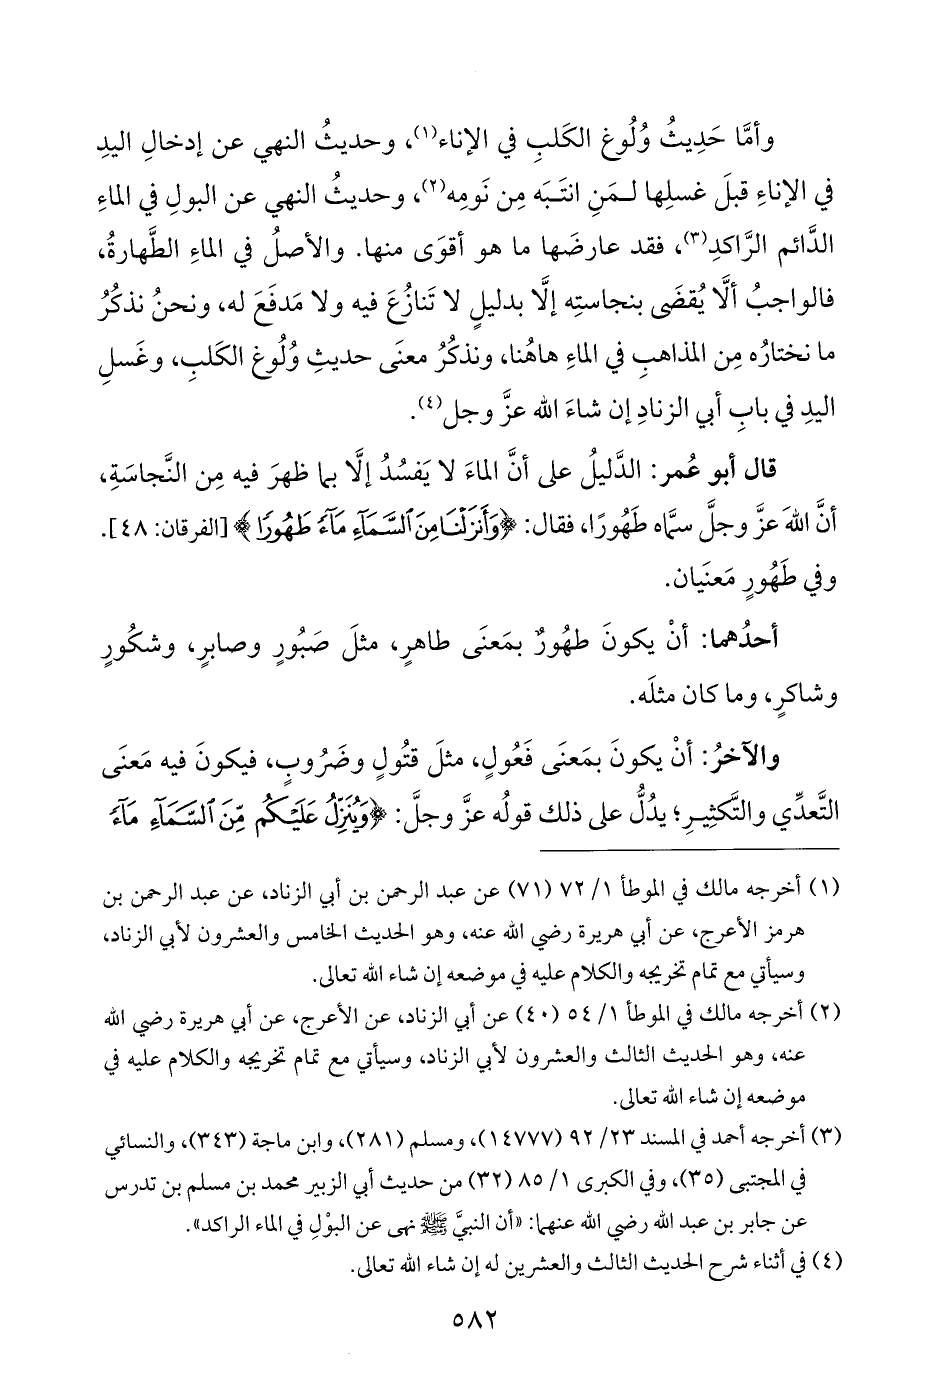 وأمَّا حَدِيثُ وُلُوغِ الكَلبِ في الإناء(١)، وحديثُ النهي عن إدخالِ اليدِ
في الإناءِ قبلَ غسلِها لـمَنِ انتَبَه مِن نَومِه(٢)، وحديثُ النهي عن البولِ في الماءِ
الدَّائم الرَّاكدِ(٣)، فقد عارضَها ما هو أقوَى منها. والأصلُ في الماءِ الطَّهارةُ،
فالواجبُ ألَّا يُقضَى بنجاستِه إلَّا بدليلٍ لا تَنازُعَ فيه ولا مَدفَعَ له، ونحنُ نذكُرُ
ما نختارُه مِن المذاهبِ في الماءِ هاهُنا، ونذكُرُ معنَى حديثِ وُلُوغِ الكلبِ، وغَسلِ
اليدِ في بابِ أبي الزنادِ إن شاءَ الله عزَّ وجل(٤).
قال أبو عُمر: الدَّليلُ على أنَّ الماءَ لا يَفسُدُ إلَّا بما ظهرَ فيه مِن النَّجاسَةِ،
أنَّ اللهَ عزَّ وجلَّ سمَّاه طَهُورًا، فقال: ﴿وَأَنزَلْنَا مِنَ ٱلسَّمَآءِ مَآءً طَهُورًا﴾ [الفرقان: ٤٨].
وفي طَهُورٍ مَعنَيان.
أحدُهما: أنْ يكونَ طهُورٌ بمَعنَى طاهرٍ، مثلَ صَبُورٍ وصابرٍ، وشكُورٍ
وشاكرٍ، وما كان مثلَه.
والآخرُ: أنْ يكونَ بمَعنَى فَعُولٍ، مثلَ قتُولٍ وضَرُوبٍ، فيكونَ فيه مَعنَى
التَّعدِّي والتَّكثِيرِ؛ يدُلُّ على ذلك قولُه عزَّ وجلَّ: ﴿وَيُنَزِّلُ عَلَيْكُم مِّنَ ٱلسَّمَآءِ مَآءً
(١) أخرجه مالك في الموطأ ١/ ٧٢ (٧١) عن عبد الرحمن بن أبي الزناد، عن عبد الرحمن بن
هرمز الأعرج، عن أبي هريرة رضي الله عنه، وهو الحديث الخامس والعشرون لأبي الزناد،
وسيأتي مع تمام تخريجه والكلام عليه في موضعه إن شاء الله تعالى.
(٢) أخرجه مالك في الموطأ ١/ ٥٤ (٤٠) عن أبي الزناد، عن الأعرج، عن أبي هريرة رضي الله
عنه، وهو الحديث الثالث والعشرون لأبي الزناد، وسيأتي مع تمام تخريجه والكلام عليه في
موضعه إن شاء الله تعالى.
(٣) أخرجه أحمد في المسند ٢٣/ ٩٢ (١٤٧٧٧)، ومسلم (٢٨١)، وابن ماجة (٣٤٣)، والنسائي
في المجتبى (٣٥)، وفي الكبرى ١/ ٨٥ (٣٢) من حديث أبي الزبير محمد بن مسلم بن تدرس
عن جابر بن عبد الله رضي الله عنهما: «أن النبيَّ ﷺ نهى عن البوْلِ في الماء الراكد».
(٤) في أثناء شرح الحديث الثالث والعشرين له إن شاء الله تعالى.
٥٨٢